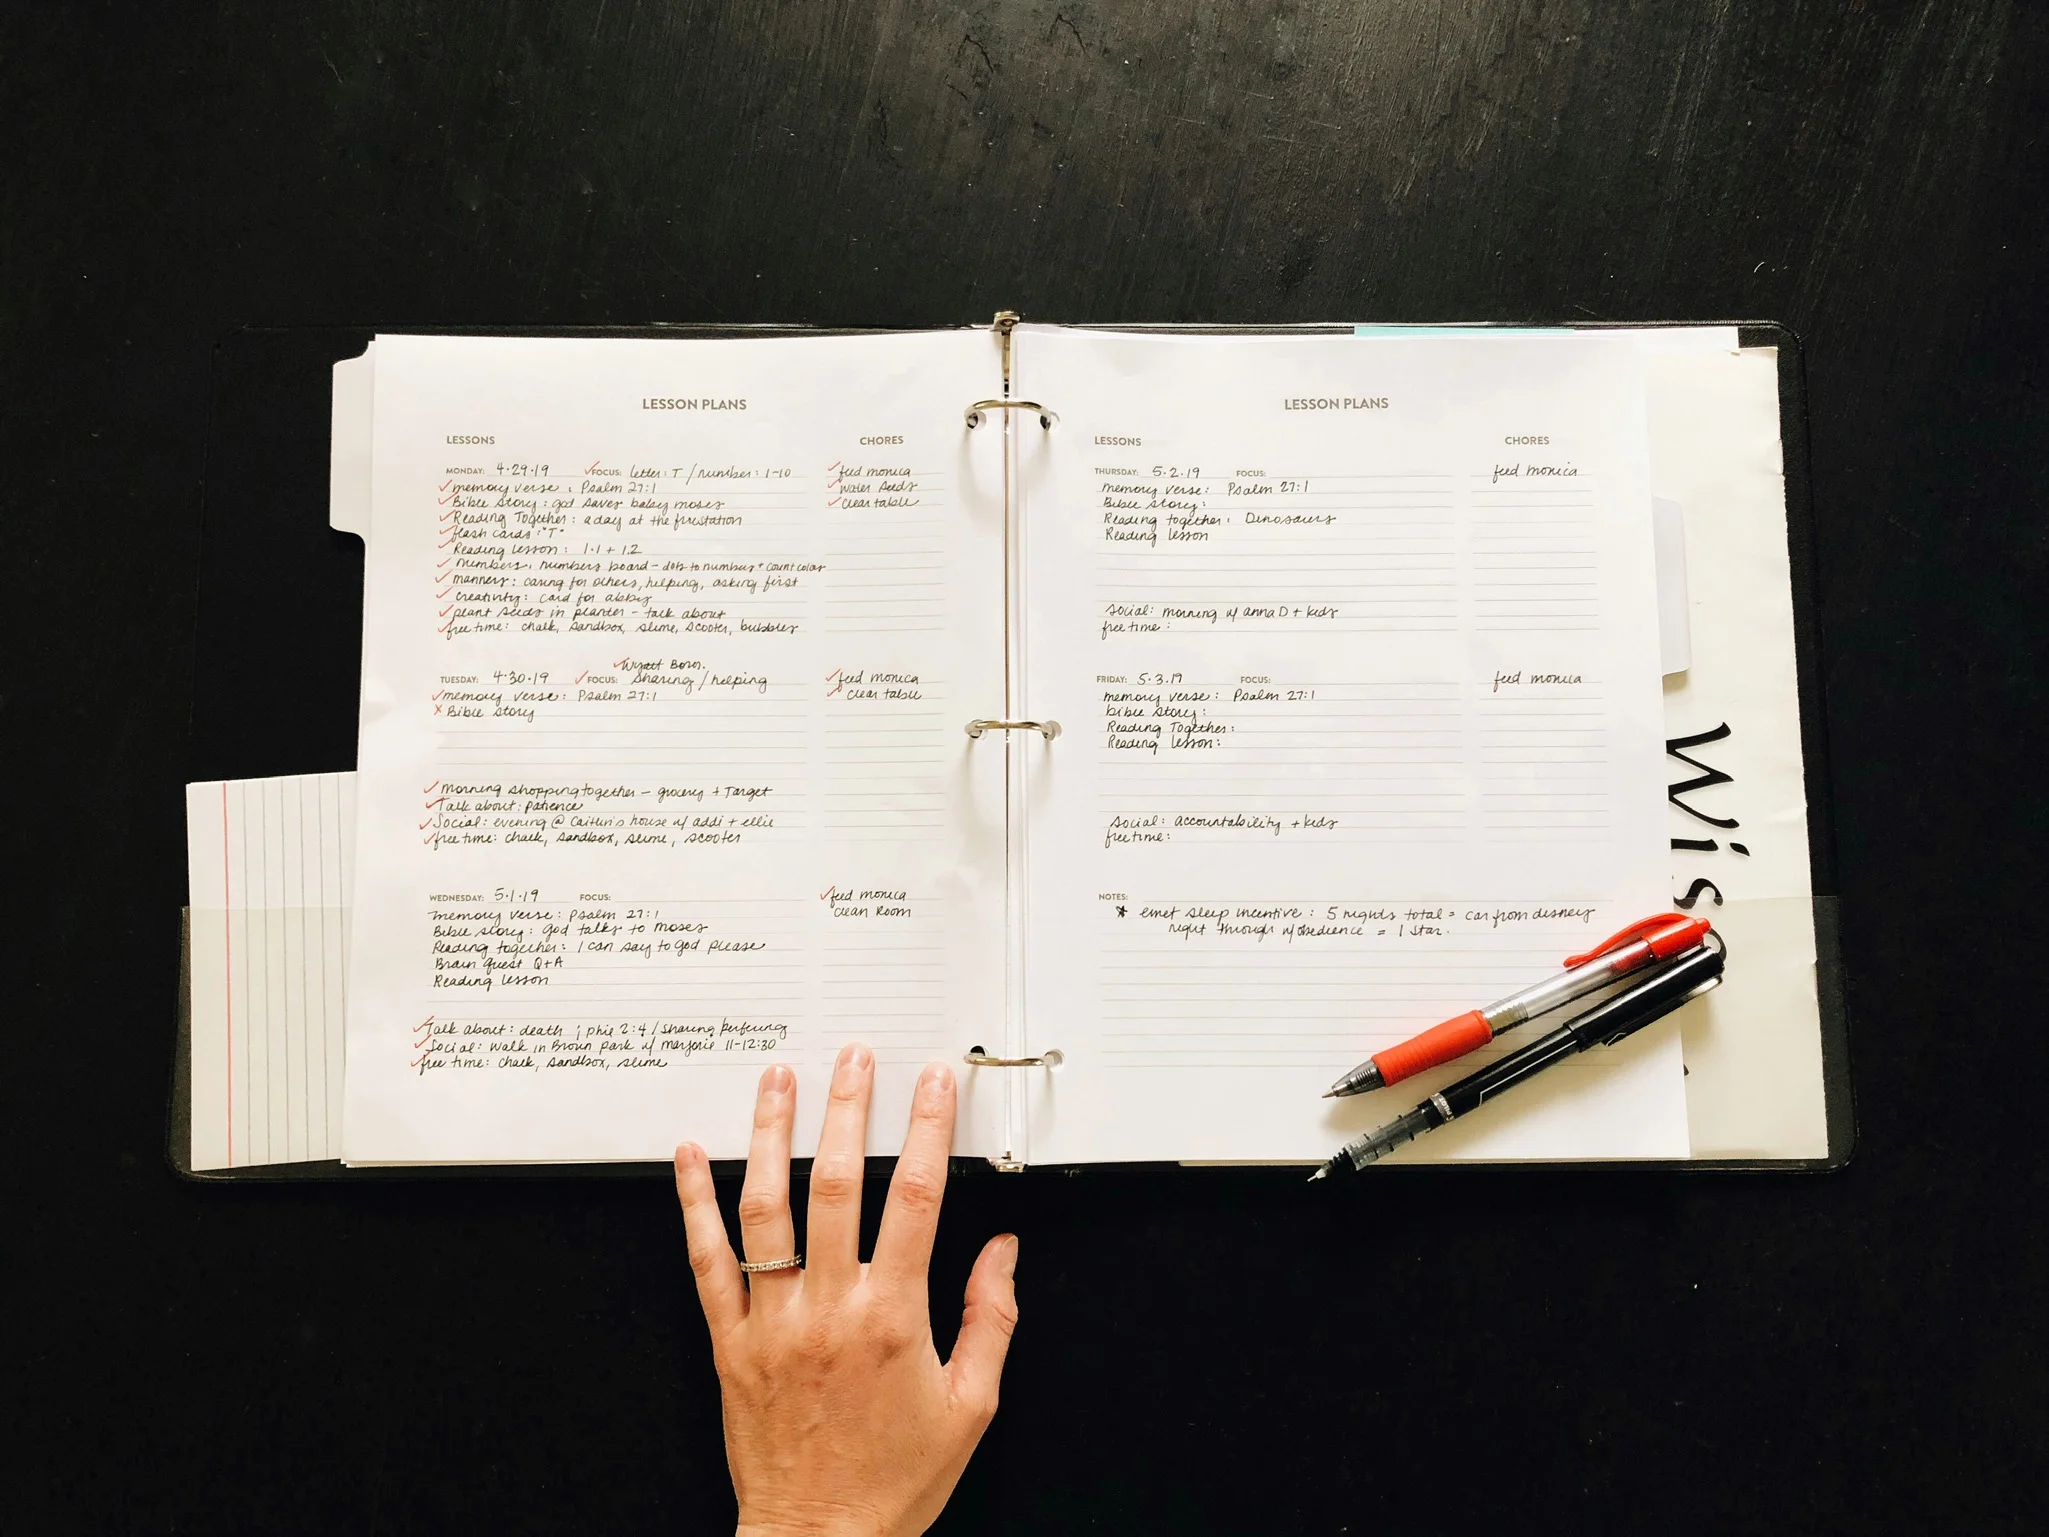 LESSON PLANS
LESSONS CHORES
MONDAY: 4.29.19 ✓FOCUS: letter: T / number: 1-10 ✓feed monica
✓memory verse: Psalm 27:1 ✓water seeds
✓Bible Story: god saves baby moses ✓clear table
✓Reading Together: a day at the firestation
✓flash cards: "T"
✓Reading lesson: 1.1 + 1.2
✓numbers: numbers board - dots to numbers + count color
✓manners: caring for others, helping, asking first
✓creativity: card for abby
✓plant seeds in planter - talk about
✓free time: chalk, sandbox, slime, scooter, bubbles
✓Wyatt Born.
TUESDAY: 4.30.19 ✓FOCUS: Sharing / helping ✓feed monica
✓memory verse: Psalm 27:1 ✓clear table
x Bible Story
✓morning shopping together - grocery + Target
✓Talk about: patience
✓Social: evening @ Caitlin's house w/ addi + ellie
✓free time: chalk, sandbox, slime, scooter
WEDNESDAY: 5.1.19 FOCUS: ✓feed monica
memory verse: Psalm 27:1 clean Room
Bible story: God talks to moses
Reading together: I can say to God please
Brain Quest Q+A
Reading lesson
✓Talk about: death ; phil 2:4 / sharing
✓Social: walk in Brown park w/ marjorie 11-12:30
✓free time: chalk, sandbox, slime
LESSON PLANS
LESSONS CHORES
THURSDAY: 5.2.19 FOCUS: feed monica
memory verse: Psalm 27:1
Bible story:
Reading together: Dinosaurs
Reading lesson
Social: morning w/ anna D + kids
free time:
FRIDAY: 5.3.19 FOCUS: feed monica
memory verse: Psalm 27:1
bible story:
Reading Together:
Reading lesson:
Social: accountability + kids
free time:
NOTES:
* emet sleep incentive: 5 nights total = car from disney
night through w/obedience = 1 star.
Wis
PILOT